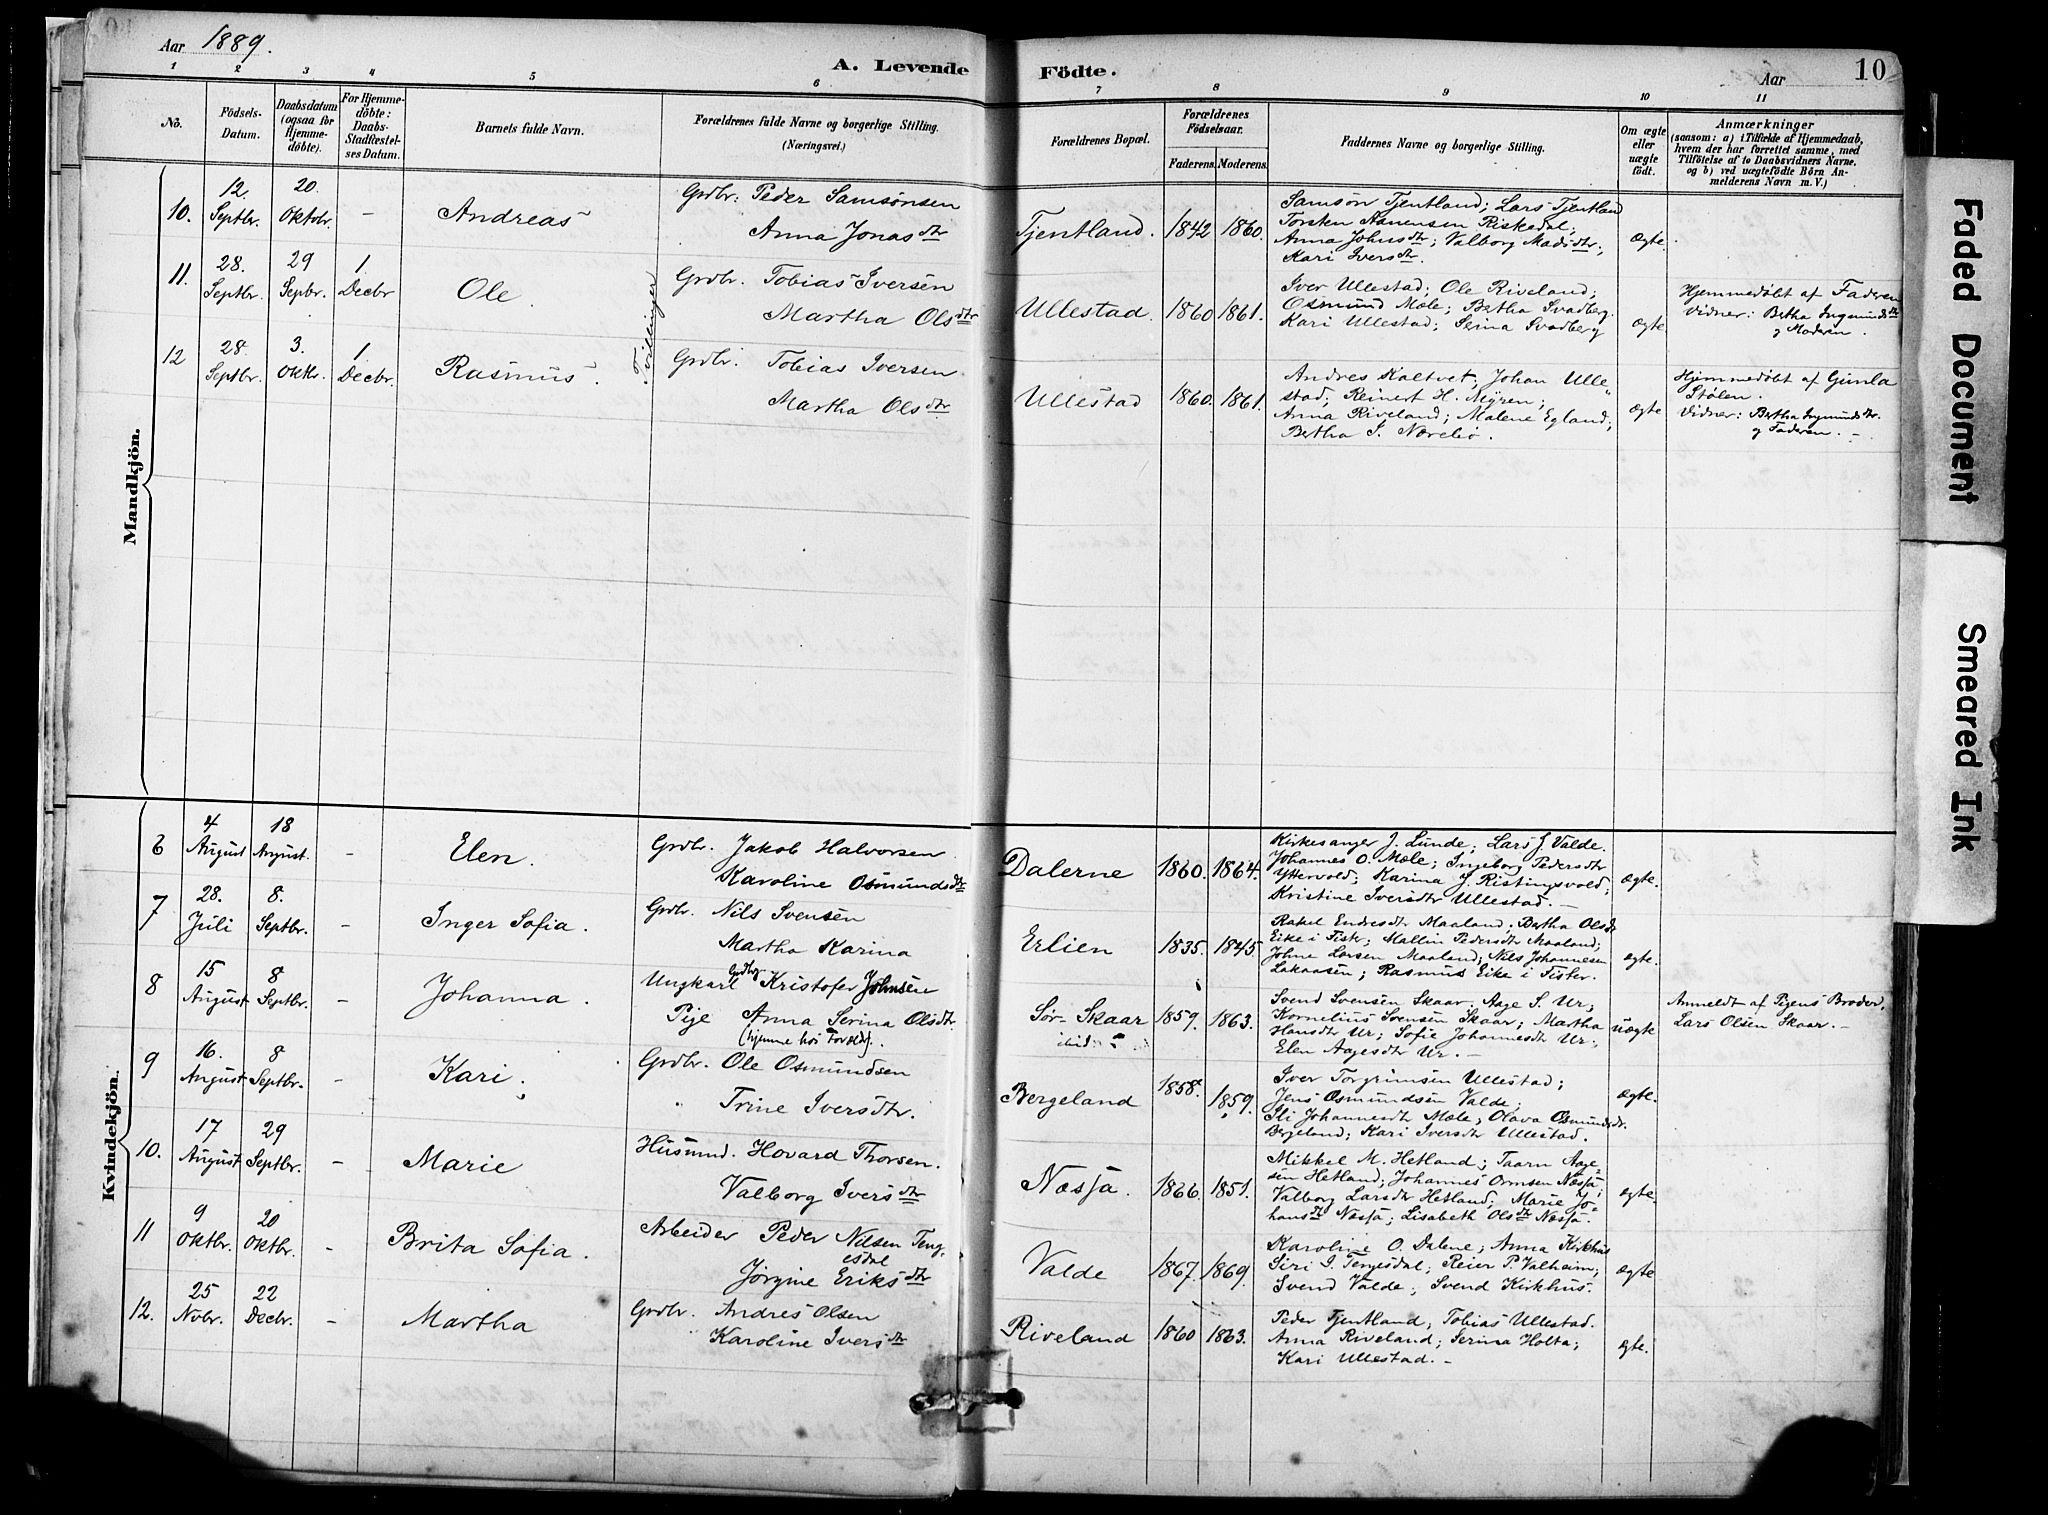 Aar 1889.
A. Levende Födte.
Aar
10
1 2 3 4 5 6 7 8 9 10 11
No.
Födsels-Datum.
Daabsdatum (ogsaa for Hjemme-döbte).
For Hjemme-döbte: Daabs-Stadfæstel-ses Datum.
Barnets fulde Navn.
Forældrenes fulde Navne og borgerlige Stilling.
(Næringsvei.)
Forældrenes Bopæl.
Forældrenes Födselsaar.
Faderens. Moderens.
Faddernes Navne og borgerlige Stilling.
Om ægte eller uægte födt.
Anmærkninger
(saasom: a) i Tilfælde af Hjemmedaab,
hvem der har forrettet samme, med
Tilföielse af to Daabsvidners Navne.
og b) ved uægtefödte Börn An-
melderens Navn m. V.)
Mandkjön.
10. 12. Septbr. 20. Oktobr. - Andreas
Grdbr. Peder Samsönsen
Anna Jonasdtr
Tjentland. 1842 1860.
Samsön Tjentland; Lars Tjentland
Torsten Aanensen Riskedal;
Anna Johnsdtr; Valborg Madsdtr;
Kari Iversdtr.
ægte.
11. 28. Septbr. 29 Sepbr. 1. Decbr Ole.
Tvillinger
Grdbr. Tobias Iversen
Martha Olsdtr
Ullestad. 1860 1861.
Iver Ullestad; Ole Riveland;
Osmund Mæle; Bertha Svadberg.
Kari Ullestad; Serina Svadberg
ægte
Hjemmedøbt af Faderen
Vidner: Bertha Ingmundsdtr
og Moderen.
12 28 Septbr. 3. Oktbr. 1 Decbr. Rasmus.
Grdbr. Tobias Iversen
Martha Olsdtr
Ullestad 1860. 1861.
Andres Kaltvet; Johan Ulle-
stad; Reinert H. Myren;
Anna Riveland; Malene Egland;
Bertha I. Nærebø.
ægte
Hjemmedøbt af Gunla
Stølen.
Vidner: Bertha Ingmundsdtr.
og Faderen. -
Kvindekjön.
6 4 August 18 August. - Elen.
Grdbr. Jakob Halvorsen
Karoline Osmundsdtr
Dalerne 1860. 1864.
Kirkesanger J. Lunde; Lars J. Valde.
Johannes O. Mæle; Ingeborg Pedersdtr
Yttervold; Karina J. Ristingsvold;
Kristine Iversdtr Ullestad. -
ægte.
7 28. Juli 8. Septbr. - Inger Sofia.
Grdbr. Nils Svensen
Martha Karina
Erlien 1835. 1845.
Rakel Endresdtr Maaland; Bertha Olsdtr
Eike i Fister; Mallin Pedersdtr Maaland;
Johne Larsen Maaland; Nils Johannesen
Lakaasen; Rasmus Eike i Fister.
ægte.
8 15 August 8 Septbr. - Johanna.
Ungkarl Grdbr Kristofer Johnsen
Pige Anna Serina Olsdtr
(hjemme hos Foræld).
Sør-Skaar
ibid
1859. 1863.
Svend Svensen Skaar. Aage S. Ur;
Kornelius Svensen Skaar; Martha
Hansdtr Ur; Sofie Johannesdtr Ur;
Elen Aagesdtr Ur. -
uægte
Anmeldt af Pigens Broder,
Lars Olsen Skaar. -
9 16. August 8 Septbr. - Kari.
Grdbr. Ole Osmundsen
Trine Iversdtr.
Bergeland 1858. 1859.
Iver Torgrimsen Ullestad;
Jens Osmundsen Valde;
Sli Johannesdtr Mæle; Olava Osmundsdtr.
Bergeland; Kari Iversdtr Ullestad.
ægte.
10. 17 August 29 Septbr. - Marie
Husmnd. Hovard Thorsen.
Valborg Iversdtr
Næsja. 1866. 1851.
Mikkel M. Hetland; Taarn Aage-
sen Hetland; Johannes Ormsen Næsja;
Valborg Larsdtr Hetland; Marie Jo-
hansdtr Næsja; Lisabeth Olsdtr Næsja.
ægte.
11 9 Oktbr. 20 Oktbr. - Brita Sofia.
Arbeider Peder Nilsen Teng-
esdal
Jørgine Eriksdtr
Valde 1867. 1869.
Karoline O. Dalene; Anna Kirkhus
Siri I. Tengesdal; Reier P. Valheim;
Svend Valde; Svend Kirkhus.
ægte
12. 25 Novbr. 22 Decbr. - Martha
Grdbr. Andres Olsen
Karoline Iversdtr
Riveland 1860 1863.
Peder Tjentland; Tobias Ullestad.
Anna Riveland; Serina Holta;
Kari Ullestad. -
ægte.
Faded Document
Smeared Ink